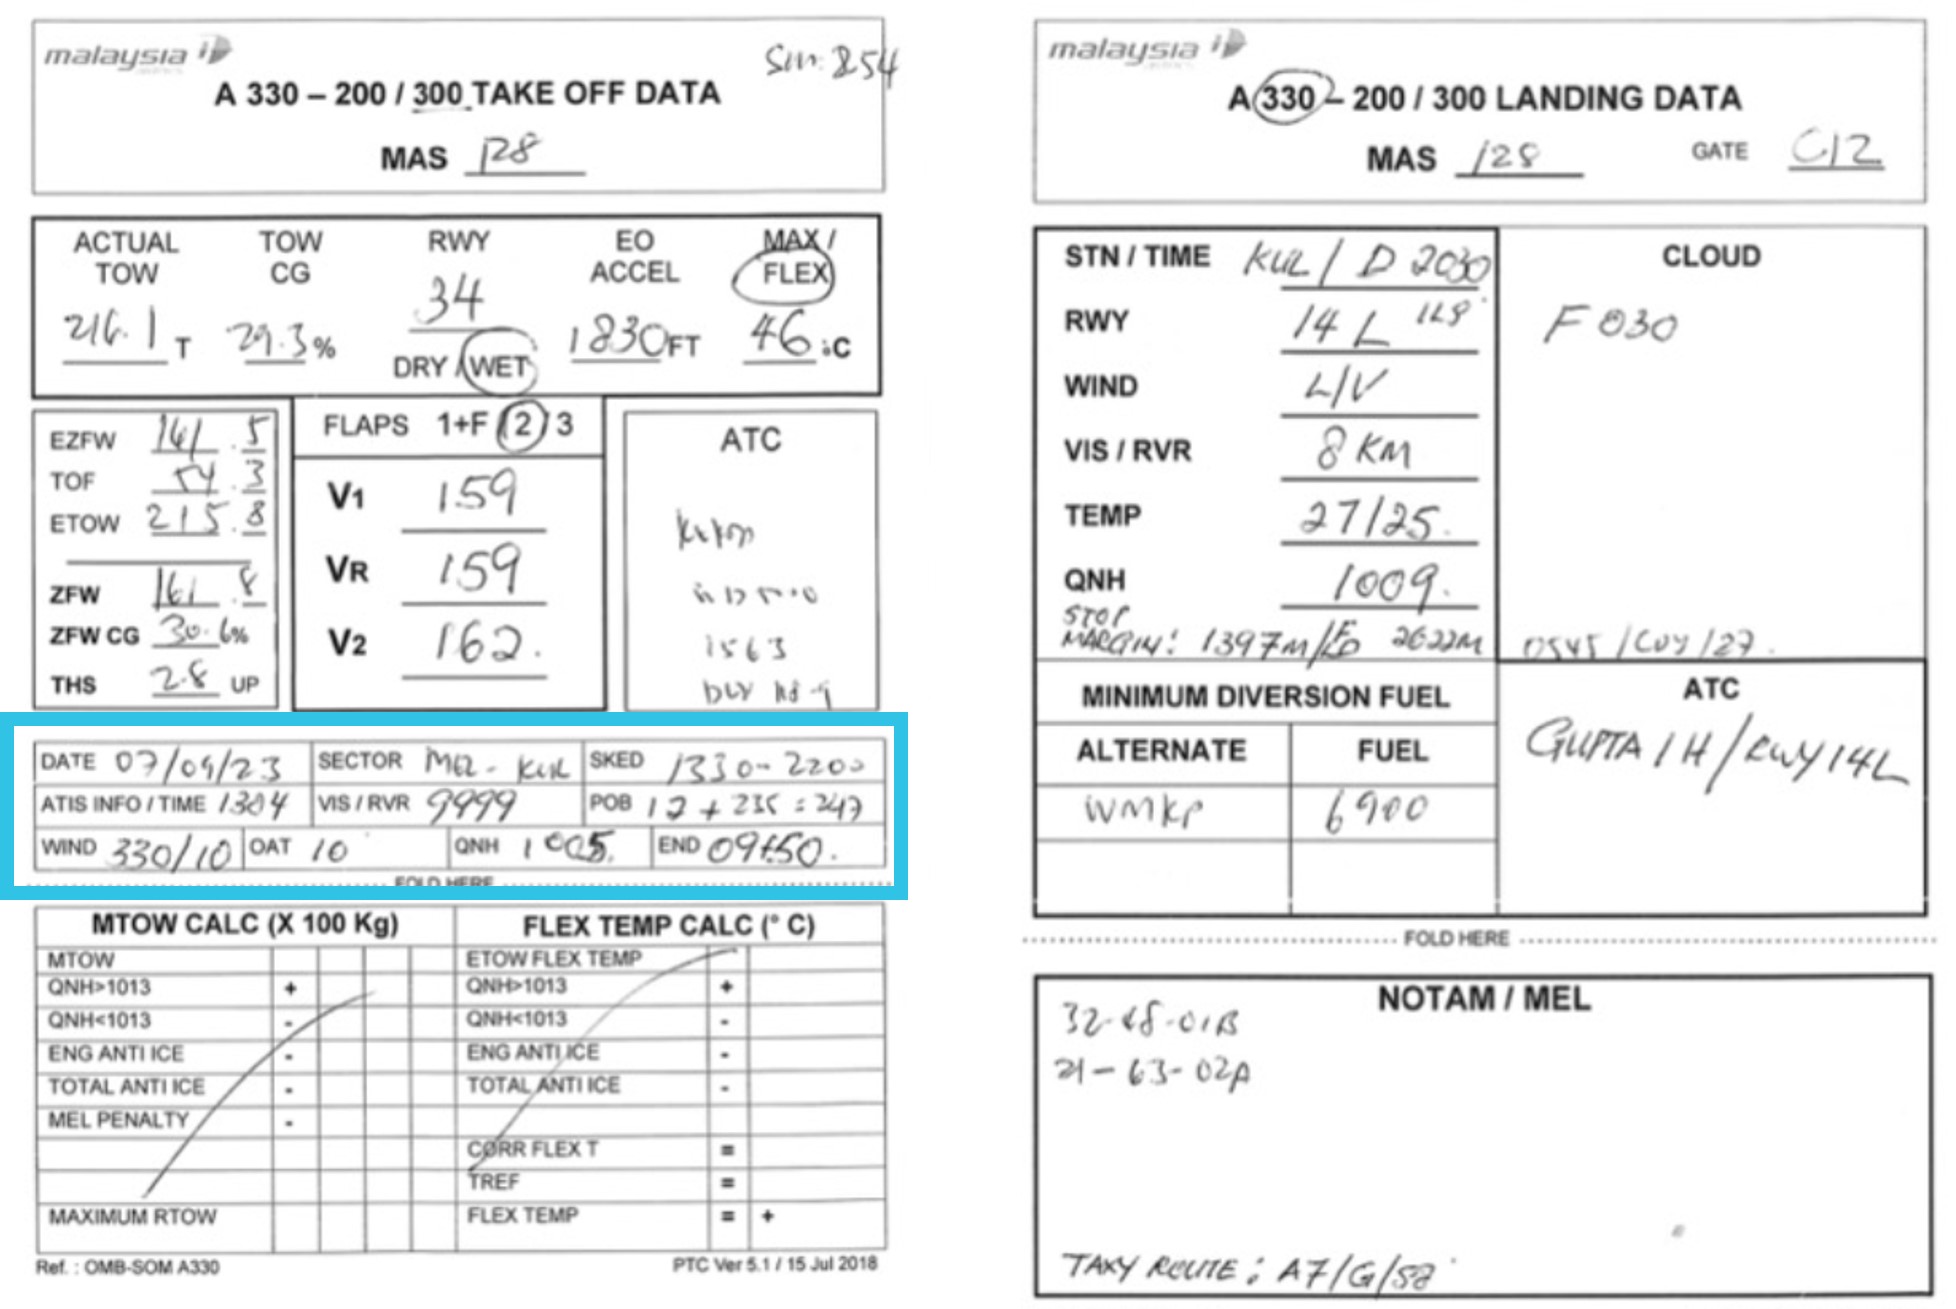 malaysia airlines
A 330 – 200 / 300 TAKE OFF DATA
MAS 128
ACTUAL TOW TOW CG RWY EO ACCEL MAX / FLEX
216.1 T 29.3 % 34 1830 FT 46 °C
DRY / WET
EZFW 161.5
TOF 54.3
ETOW 215.8
ZFW 161.8
ZFW CG 30.6%
THS 2.8 UP
FLAPS 1+F / 2 / 3
V1 159
VR 159
V2 162.
ATC
1563
DATE 07/09/23 SECTOR MEL - KUL SKED 1330-2200
ATIS INFO / TIME 1304 VIS / RVR 9999 POB 12 + 235 = 247
WIND 330/10 OAT 10 QNH 1005. END
FOLD HERE
MTOW CALC (X 100 Kg) FLEX TEMP CALC (° C)
MTOW ETOW FLEX TEMP
QNH>1013 + QNH>1013 +
QNH<1013 - QNH<1013 -
ENG ANTI ICE - ENG ANTI ICE -
TOTAL ANTI ICE - TOTAL ANTI ICE -
MEL PENALTY -
CORR FLEX T =
TREF =
MAXIMUM RTOW FLEX TEMP = +
Ref. : OMB-SOM A330 PTC Ver 5.1 / 15 Jul 2018
malaysia airlines
A 330 – 200 / 300 LANDING DATA
MAS 128 GATE C12
STN / TIME KUL / D 2030
RWY 14 L
WIND L/V
VIS / RVR 8 KM
TEMP 27/25.
QNH 1009.
STOP
MARGIN: 1397M/ 2622M
CLOUD
F 030
MINIMUM DIVERSION FUEL
ALTERNATE FUEL
WMKP 6900
ATC
GUPTA 1H/RWY14L
FOLD HERE
NOTAM / MEL
32-48-01B
21-63-02A
TAXY ROUTE: A7/G/